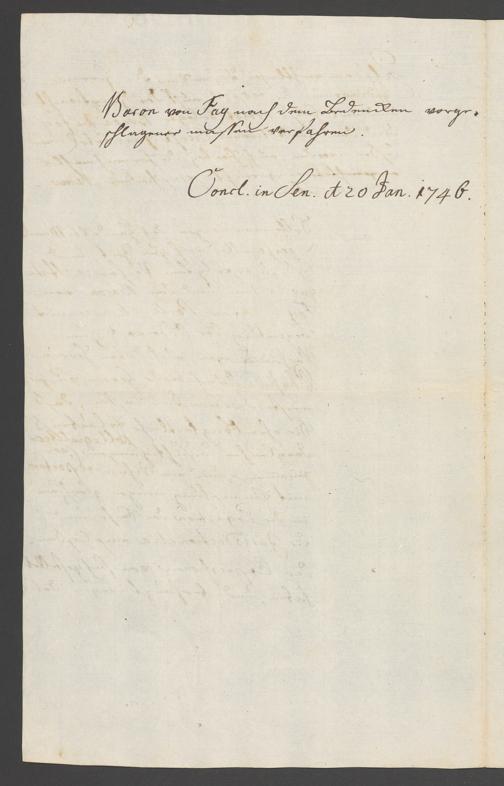 Baron von Fay nach dem Bedencken vorge-
schlagener massen verfahren.
Concl. in Sen. d 20 Jan. 1746.